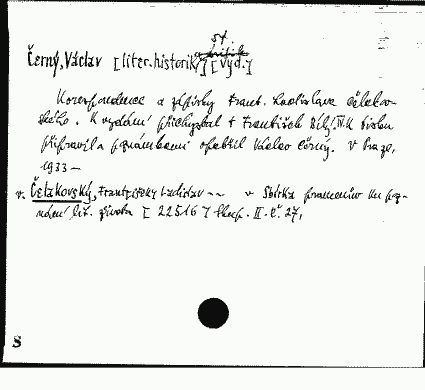 st.
Černý, Václav [liter. historik] [vyd.]
Korespondence a zápisky Frant. Ladislava Čelakov-
ského. K vydání přichystal † František Bílý. IV. K tisku
připravil a poznámkami opatřil Václav Černý. V Praze,
1933 —
v. Čelakovský, František Ladislav — v Sbírka pramenův ku poz-
nání lit. života [ 22516 ] Skup. II. č. 27,
S